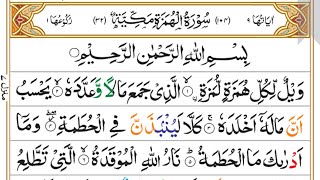 اٰيَاتُهَا ٩ (١٠٤) سُوْرَةُ الْهُمَزَةِ مَكِّيَّةٌ (٣٢) رُكُوْعُهَا ١
بِسْمِ اللّٰهِ الرَّحْمٰنِ الرَّحِيْمِ
وَيْلٌ لِّكُلِّ هُمَزَةٍ لُّمَزَةِ ۙ الَّذِيْ جَمَعَ مَالًا وَّعَدَّدَهٗ ۙ يَحْسَبُ
اَنَّ مَالَهٗٓ اَخْلَدَهٗ ۚ كَلَّا لَيُنْۢبَذَنَّ فِي الْحُطَمَةِ ۖ وَمَآ
اَدْرٰىكَ مَا الْحُطَمَةُ ؕ نَارُ اللّٰهِ الْمُوْقَدَةُ ۙ الَّتِيْ تَطَّلِعُ